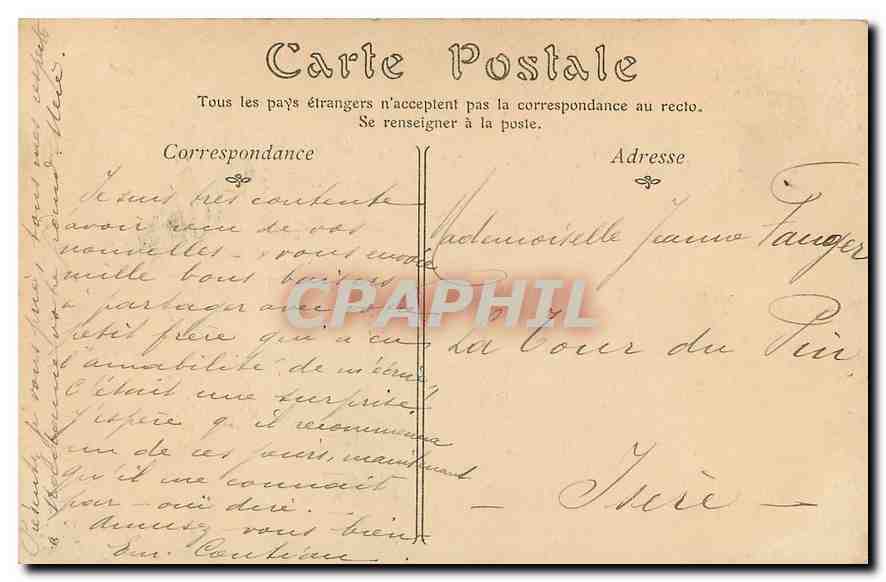 Carte Postale
Tous les pays étrangers n'acceptent pas la correspondance au recto.
Se renseigner à la poste.
Correspondance
Adresse
Je suis très contente
avoir une de vos
nouvelles - vous envoie
mille bons baisers
à partager avec votre
petit frère qui a eu
l'amabilité de m'écrire!
C'était une surprise!
J'espère qu'il recommencera
un de ces jours, maintenant
qu'il me connait
par - ouï dire.
amusez-vous bien
Em.
Présentez je vous prie, tous mes respects
à Madame votre Mère.
Mademoiselle Jeanne Fauger
La Tour du Pin
- Isère -
CPAPHIL